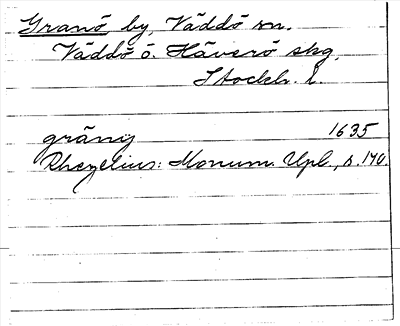 Granö by, Väddö sn.
Väddö o. Häverö skg,
Stockh. l.
gränij 1635
Rhezelius: Monum. Upl., s. 140.